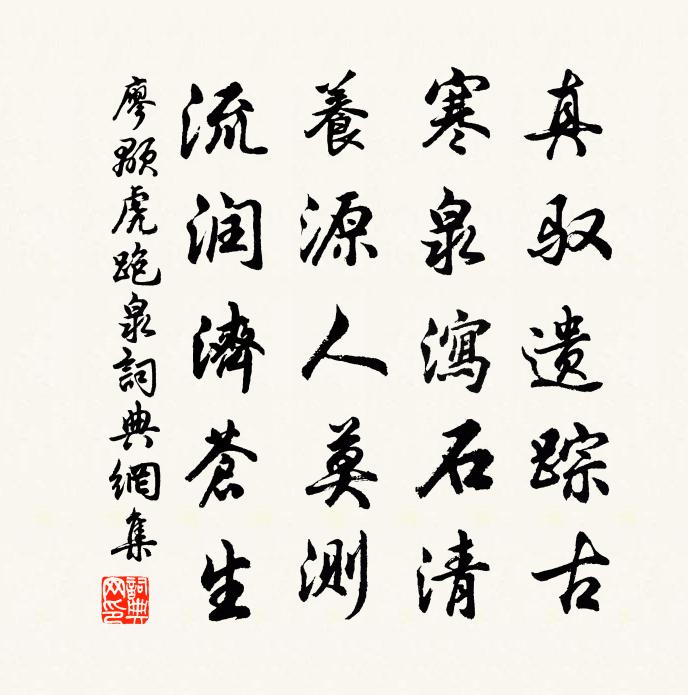 真驭遗踪古
寒泉瀉石清
養源人莫测
流润濟蒼生
廖顒虎跑泉詞典網集
詞典網印